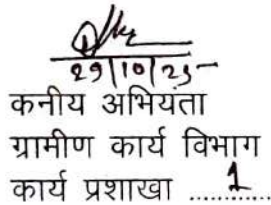 29/10/25
कनीय अभियता
ग्रामीण कार्य विभाग
कार्य प्रशाखा ........1